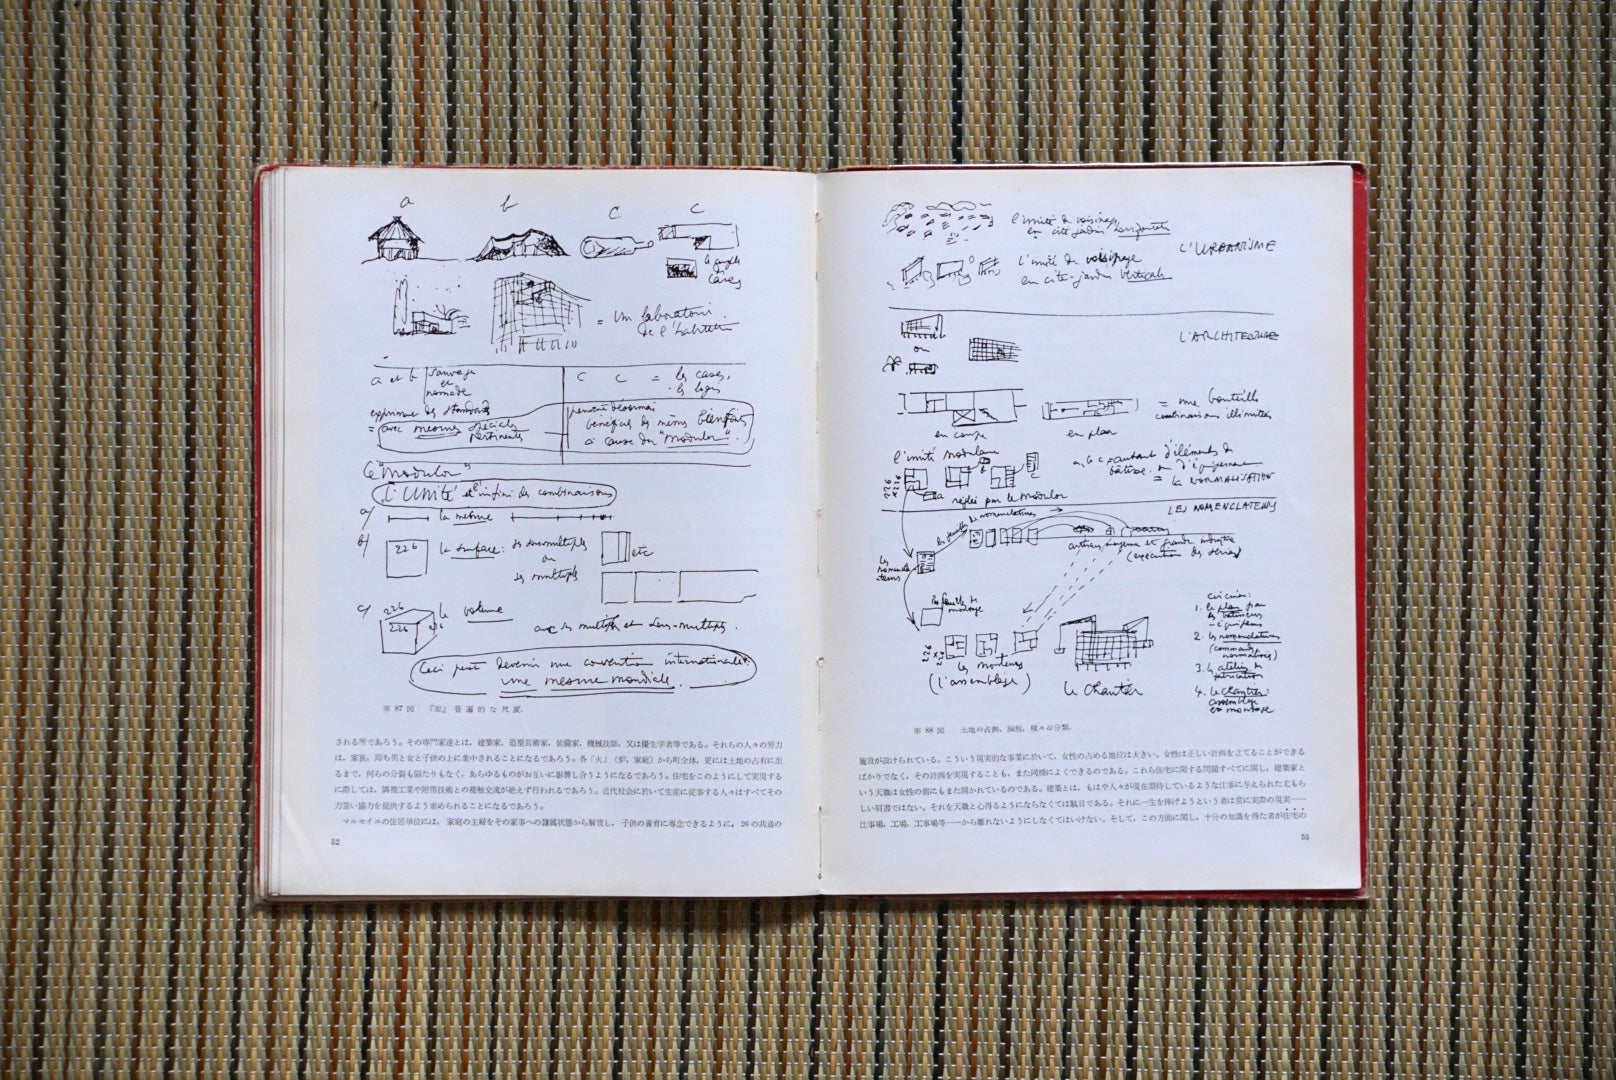 a b C C
= un laboratoire
de l'habitation
a et b
sauvage
et
nomade
C C = les cases,
les logis
exprime des standards
= avec mesures spéciales
pertinentes
peuvent désormais
bénéficier des mêmes bienfaits
à cause du "Modulor".
Le "Modulor"
L'Unité et l'infini des combinaisons
a) la mesure
b) 226 la surface: ses sousmultiples
ou
ses multiples
etc
c) 226 226 226 le volume
avec ses multiples et sous-multiples.
Ceci peut devenir une convention internationale:
une mesure mondiale.
第 87 図 『型』普遍的な尺度.
される所であろう。その専門家達とは、建築家、造型芸術家、装備家、機械技師、又は優生学者等である。それらの人々の努力
は、家族、即ち男と女と子供の上に集中されることになるであろう。各「火」（炉、家庭）から町全体、更には土地の占有に至
るまで、何らの分裂も隔たりもなく、あらゆるものがお互いに影響し合うようになるであろう。住宅をこのようにして実現する
に際しては、隣接工業や附帯技術との接触交流が絶えず行われるであろう。近代社会に於いて生産に従事する人々はすべてその
力強い協力を提供するよう求められることになるであろう。
マルセイユの住居単位には、家庭の主婦をその家事への隷属状態から解放し、子供の養育に専念できるように、26の共通の
52
l'unité de voisinage,
en cité jardin horizontale
L'URBANISME
l'unité de voisinage
en cité-jardin verticale
L'ARCHITECTURE
ou
= une bouteille
combinaisons illimitées
en coupe en plan
l'unité modulaire
a, b, c = autant d'éléments de
bâtisse ou d'équipement
= la NORMALISATION
226
x 226
a réglés par le modulor
LES NOMENCLATEURS
les feuilles de nomenclatures
artisans, moyenne et grande industrie
(exécution des séries)
les nomenclateurs
les feuilles de
montage
226
x 226
les monteurs
(l'assemblage)
le chantier
1. le plan par
les bâtisseurs
- équipeurs
2. les nomenclatures
(commandes
normatives)
3. les ateliers de
fabrication
4. le chantier:
assemblage
et montage
第 88 図 土地の占拠、細胞、種々の分類.
施設が設けられている。こういう現実的な事業に於いて、女性の占める地位は大きい。女性は正しい計画を立てることができる
ばかりでなく、その計画を実現することも、また同様によくできるのである。これら住宅に関する問題すべてに関し、建築家と
いう天職は女性の前にもまた開かれているのである。建築とは、もはや人々が現在期待しているような仕事に与えられた尤もら
しい肩書ではない。それを天職と心得るようにならなくては駄目である。それに一生を捧げようという者は常に実際の現実――
仕事場、工場、工事場等――から離れないようにしなくてはいけない。そして、この方面に関し、十分の知識を得た者が住宅の
53